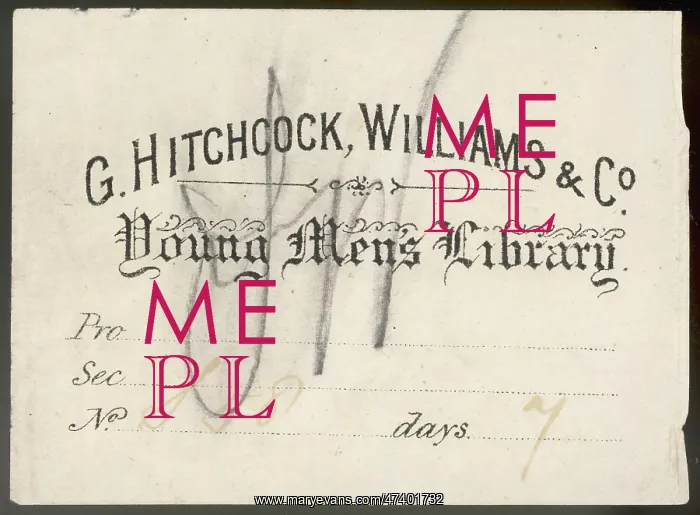 G. HITCHCOCK, WILLIAMS & Co.
Young Mens Library.
Pro
Sec
No. days. 7
ME
PL
ME
PL
www.maryevans.com/47401732